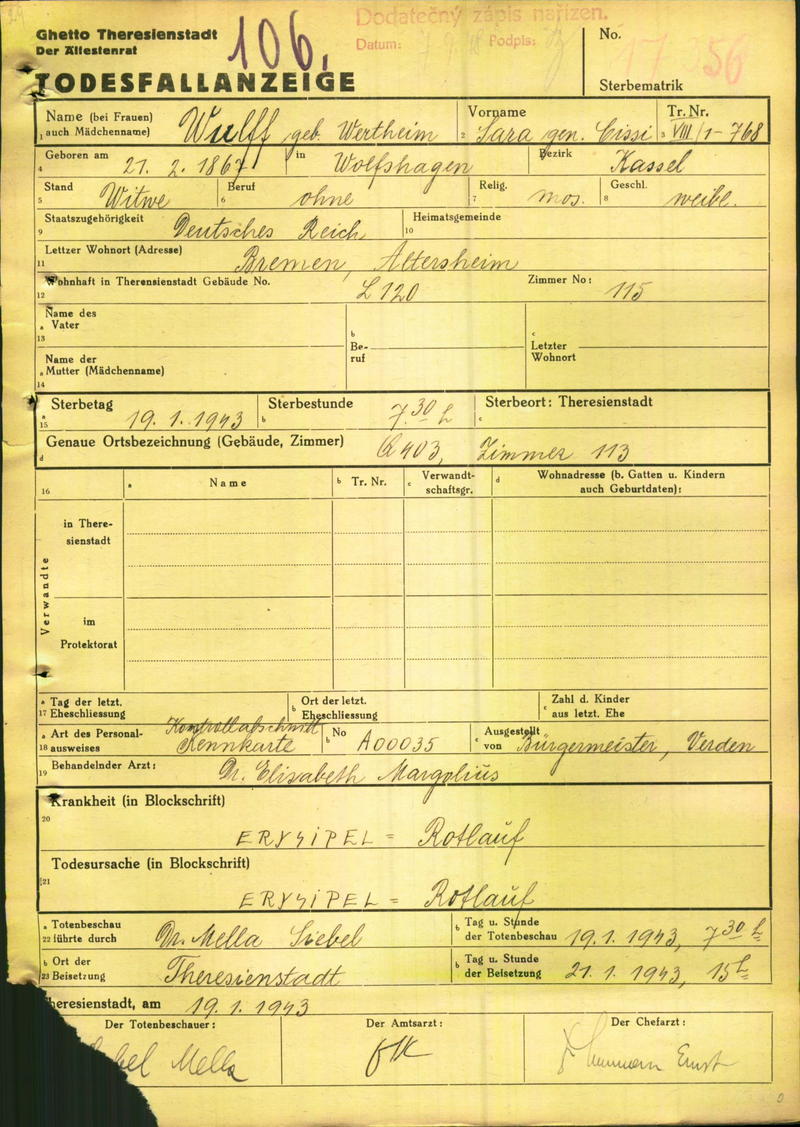 Ghetto Theresienstadt
Der Ältestenrat
106.
Dodatečný zápis nařízen.
Datum: Podpis:
No.
TODESFALLANZEIGE
Sterbematrik
Name (bei Frauen) auch Mädchenname) Wulff geb. Wertheim Vorname Sara gen. Cissi Tr. Nr. VIII/1-768
1 2 3
Geboren am 21. 2. 1867 in Wolfshagen Bezirk Kassel
4
Stand Witwe Beruf ohne Relig. mos. Geschl. weibl.
5 6 7 8
Staatszugehörigkeit Deutsches Reich Heimatsgemeinde
9 10
Letzter Wohnort (Adresse)
11 Bremen, Altersheim
Wohnhaft in Theresienstadt Gebäude No. L 120 Zimmer No: 115
12
Name des
a Vater
13
b Be-
ruf
c Letzter
Wohnort
Name der
a Mutter (Mädchenname)
14
Sterbetag 19. 1. 1943 Sterbestunde 7.30 h Sterbeort: Theresienstadt
a 15 b c
Genaue Ortsbezeichnung (Gebäude, Zimmer) Q 403, Zimmer 113
d
16 a Name b Tr. Nr. c Verwandt-
schaftsgr. d Wohnadresse (b. Gatten u. Kindern
auch Geburtdaten):
Verwandte
in There-
sienstadt
im
Protektorat
a Tag der letzt.
17 Eheschliessung
b Ort der letzt.
Eheschliessung
c Zahl d. Kinder
aus letzt. Ehe
a Art des Personal-
18 ausweises
Kontrollabschnitt
Kennkarte
b No A00035
c Ausgestellt
von Bürgermeister, Verden
Behandelnder Arzt: Dr. Elisabeth Margolius
19
Krankheit (in Blockschrift)
20
ERYSIPEL = Rotlauf
Todesursache (in Blockschrift)
21
ERYSIPEL = Rotlauf
a Totenbeschau
22 führte durch Dr. Mella Siebel
b Tag u. Stunde
der Totenbeschau 19. 1. 1943, 7 30 h
b Ort der
23 Beisetzung Theresienstadt
b Tag u. Stunde
der Beisetzung 21. 1. 1943, 15 h
heresienstadt, am 19. 1. 1943
Der Totenbeschauer: Der Amtsarzt: Der Chefarzt:
Mella Ernst